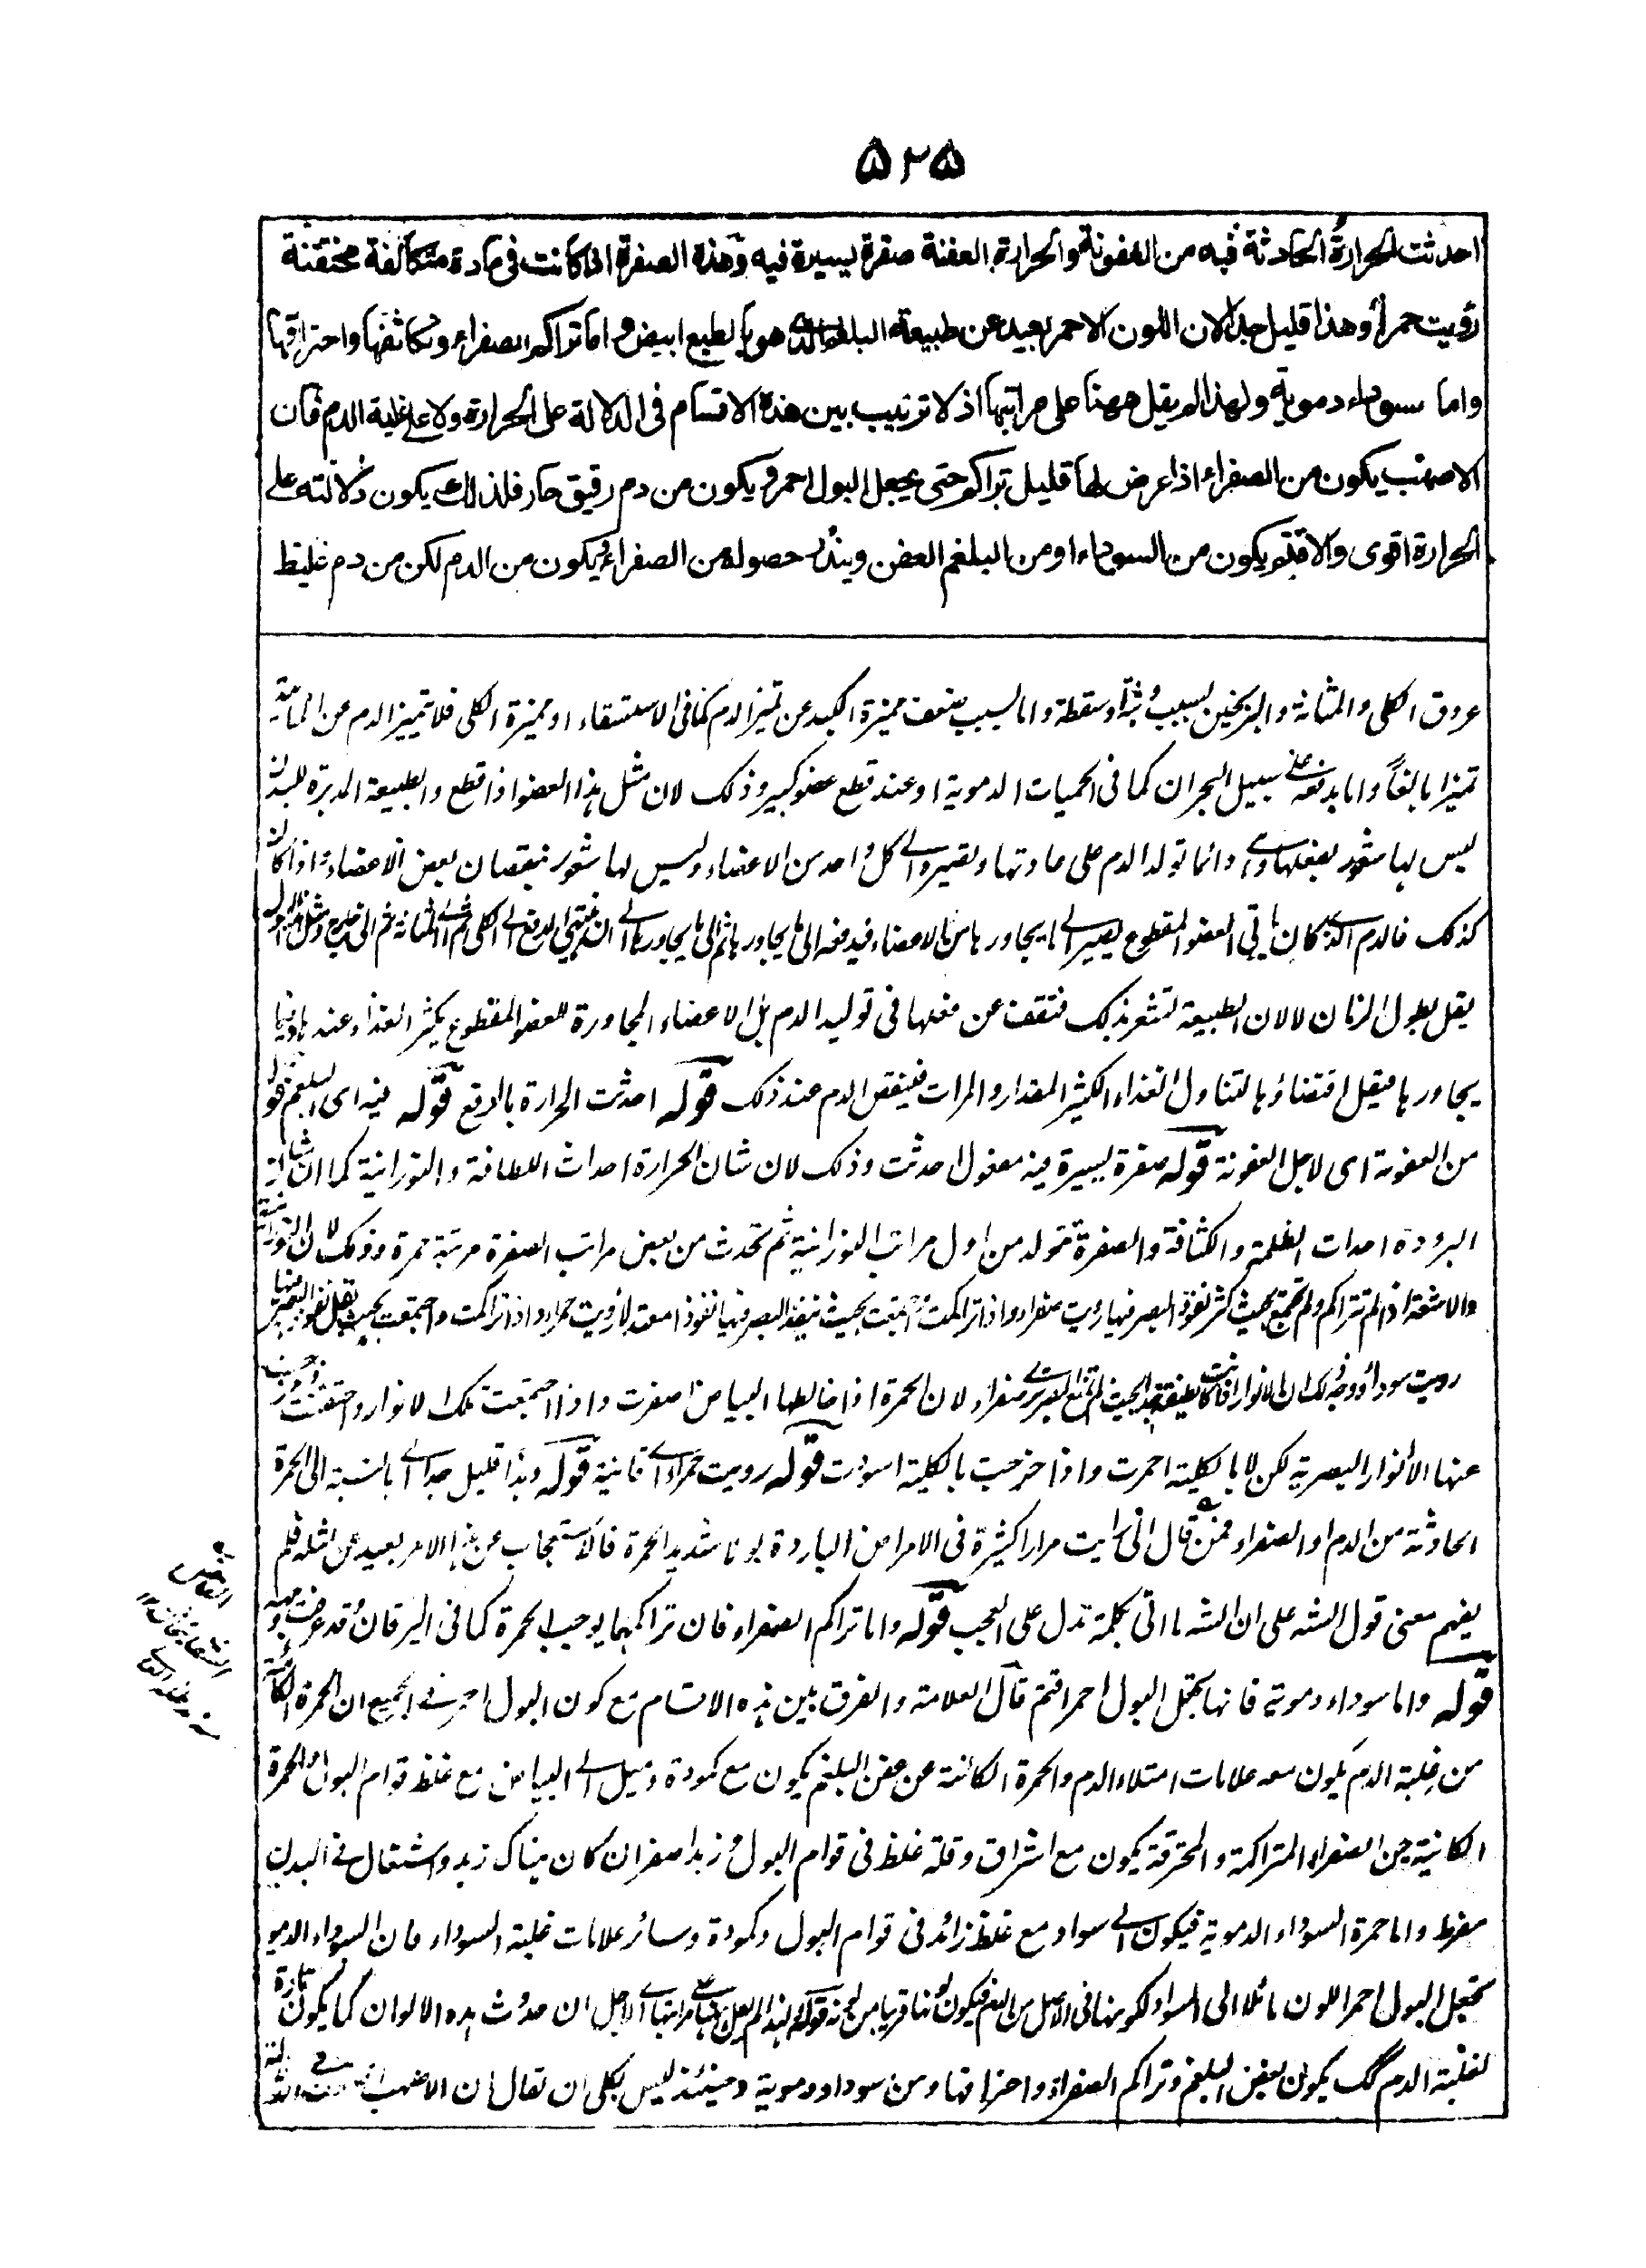 ۵۲۵
احدثت الحرارة الحادثة فيه من العفونة والحرارة العفنة صفرة يسيرة فيه وهذه الصفرة اذا كانت في مادة متكاثفة محتقنة
رؤيت حمراء وهذا قليل جدا لان اللون الاحمر بعيد عن طبيعة البلغم الذى هو بالطبع ابيض واما تراكم الصفراء وتكاثفها واحتراقها
واما سوداء دموية ولهذا لم يقل ههنا على مراتبها اذ لا ترتيب بين هذه الاقسام فى الدلالة على الحرارة ولا على غلبة الدم فان
الاصهب يكون من الصفراء اذا عرض لها قليل تراكم حتى يجعل البول احمر ويكون من دم رقيق حار فلذلك يكون دلالته على
الحرارة اقوى والاقتم يكون من السوداء او من البلغم العفن ويندر حصوله من الصفراء ويكون من الدم لكن من دم غليظ
عروق الكلى والمثانة والبربخين بسبب وثبة او سقطة واما لسبب ضعف مميزة الكبد عن تميز الدم كما فى الاستسقاء او مميزة الكلى فلا تميز الدم عن المائية
تميزا بالغا واما بدفعه على سبيل البحران كما فى الحميات الدموية او عند قطع عضو كبير وذلك لان مثل هذا العضو اذا قطع والطبيعة المدبرة للبدن
ليس لها شعور بفعلها وهى دائما تولد الدم على عادتها وتصيره الى كل واحد من الاعضاء وليس لها شعور بنقصان بعض الاعضاء واذا كان
كذلك فالدم الذى كان ياتى العضو المقطوع يصير الى ما يجاورها من الاعضاء فيدفعه الى ما يجاورها ثم الى ما يجاورها الى ان ينتهى الدفع الى الكلى ثم الى المثانة ثم الى خارج
يقل بطول الزمان لا لان الطبيعة تشعر بذلك فتقف عن فعلها فى توليد الدم بل الاعضاء المجاورة للعضو المقطوع يكثر الغذاء عندها وفيما
يجاورها فيقل اقتضاؤها لتناول الغذاء الكثير المقدار والمرات فينقص الدم عند ذلك قوله احدثت الحرارة بالرفع قوله فيه اى البلغم قوله
من العفونة اى لاجل العفونة قوله صفرة يسيرة فيه مفعول احدثت وذلك لان شان الحرارة احداث اللطافة والنورانية كما ان شان
البرودة احداث الظلمة والكثافة والصفرة تتولد من اول مراتب النورانية ثم تحدث من بعض مراتب الصفرة مرتبة حمرة وذلك لان النورانية
والاشعة اذا لم تتراكم ولم تجتمع بحيث كثر نفوذ البصر فيها رويت صفراء واذا تراكمت واجتمعت بحيث ينفذ البصر فيها نفوذا معتدلا رويت حمراء واذا تراكمت واجتمعت بحيث يقل نفوذ البصر فيها
رويت سوداء ووجه ذلك ان الانوار اذا كانت لطيفة جدا بحيث لم تمنع البصر يرى صفراء لان الحمرة اذا خالطها البياض اصفرت واذا اجتمعت تلك الانوار واحتقنت
عنها الانوار البصرية لكن لا بالكلية احمرت واذا خرجت بالكلية اسودت قوله رويت حمراء اى قانية قوله وهذا قليل جدا اى بالنسبة الى الحمرة
الحادثة من الدم او الصفراء فمن قال انى رايت مرارا كثيرة فى الامراض الباردة بولا شديد الحمرة فالاستعجاب عن هذا الامر بعيد عن مثله فلم
يفهم معنى قول الشه على ان الشه ما اتى بكلمة تدل على العجب قوله واما تراكم الصفراء فان تراكمها يوجب الحمرة كما فى اليرقان وقد عرفت وجهه
قوله واما سوداء دموية فانها تجعل البول احمر اقتم قال العلامة والفرق بين هذه الاقسام مع كون البول احمر فى الجميع ان الحمرة الكائنة
من غلبة الدم يكون معه علامات امتلاء الدم والحمرة الكائنة عن عفن البلغم يكون مع كمودة وميل الى البياض مع غلظ قوام البول والحمرة
الكائنة من الصفراء المتراكمة والمحترقة يكون مع اشراق وقلة غلظ فى قوام البول وزبد اصفر ان كان هناك زبد واشتعال فى البدن
مفرط واما حمرة السوداء الدموية فيكون الى سواد مع غلظ زائد فى قوام البول وكمودة وسائر علامات غلبة السوداء فان السوداء الدموية
تجعل البول احمر اللون مائلا الى السواد لكونها فى الاصل من الدم فيكون لونها قريبا من لونه قوله ولهذا لم يقل ههنا على مراتبها اى لاجل ان حدوث هذه الالوان كما يكون تارة
لغلبة الدم كك يكون لعفن البلغم وتراكم الصفراء واحتراقها ومن سوداء دموية وحينئذ ليس بكلى ان يقال ان الاصهب